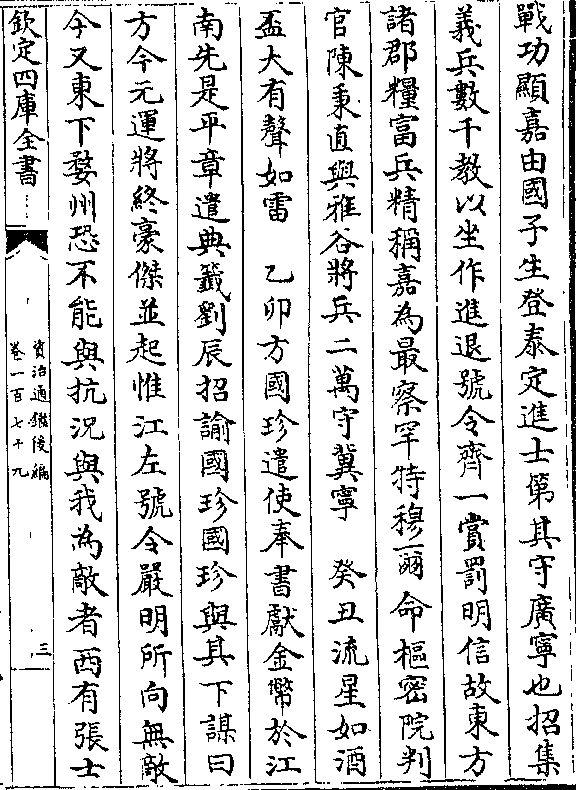 戰功顯嘉由國子生登泰定進士第其守廣寧也招集
義兵數千教以坐作進退號令齊一賞罰明信故東方
諸郡糧富兵精稱嘉為最察罕特穆爾命樞密院判
官陳秉直與雅谷將兵二萬守冀寧　癸丑流星如酒
盃大有聲如雷　乙卯方國珍遣使奉書獻金幣於江
南先是平章遣典籖劉辰招諭國珍國珍與其下謀曰
方今元運將終豪傑並起惟江左號令嚴明所向無敵
今又東下婺州恐不能與抗況與我為敵者西有張士
欽定四庫全書
資治通鑑後編
卷一百七十九
三